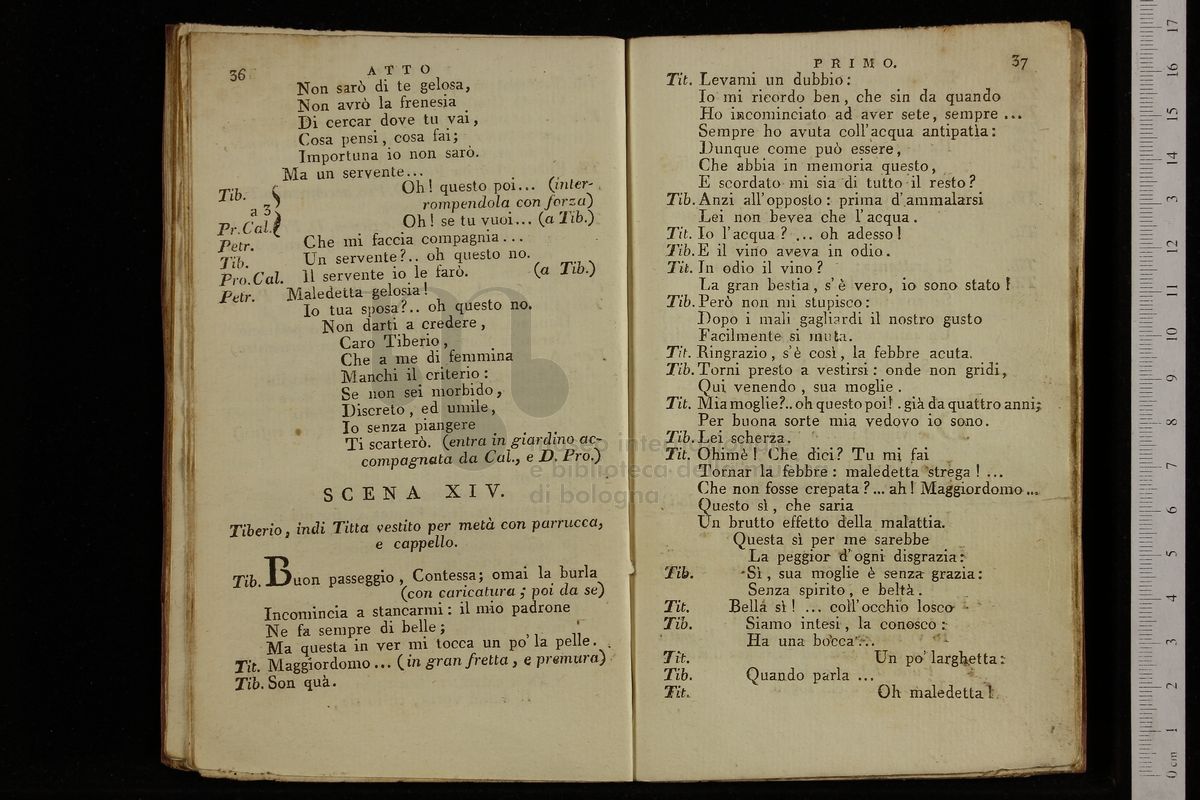 36
ATTO
Non sarò di te gelosa,
Non avrò la frenesia
Di cercar dove tu vai,
Cosa pensi, cosa fai;
Importuna io non sarò.
Ma un servente...
Tib. Oh! questo poi... (inter-
a 3 rompendola con forza)
Pr.Cal. Oh! se tu vuoi... (a Tib.)
Petr. Che mi faccia compagnia...
Tib. Un servente?.. oh questo no.
Pro.Cal. Il servente io le farò. (a Tib.)
Petr. Maledetta gelosia!
Io tua sposa?.. oh questo no.
Non darti a credere,
Caro Tiberio,
Che a me di femmina
Manchi il criterio:
Se non sei morbido,
Discreto, ed umile,
Io senza piangere
Ti scarterò. (entra in giardino ac-
compagnata da Cal., e D. Pro.)
SCENA XIV.
Tiberio, indi Titta vestito per metà con parrucca,
e cappello.
Tib. Buon passeggio, Contessa; omai la burla
(con caricatura; poi da se)
Incomincia a stancarmi: il mio padrone
Ne fa sempre di belle;
Ma questa in ver mi tocca un po' la pelle.
Tit. Maggiordomo... (in gran fretta, e premura)
Tib. Son quà.
PRIMO.
37
Tit. Levami un dubbio:
Io mi ricordo ben, che sin da quando
Ho incominciato ad aver sete, sempre ...
Sempre ho avuta coll'acqua antipatìa:
Dunque come può essere,
Che abbia in memoria questo,
E scordato mi sia di tutto il resto?
Tib. Anzi all'opposto: prima d'ammalarsi
Lei non bevea che l'acqua.
Tit. Io l'acqua? ... oh adesso!
Tib. E il vino aveva in odio.
Tit. In odio il vino?
La gran bestia, s'è vero, io sono stato!
Tib. Però non mi stupisco:
Dopo i mali gagliardi il nostro gusto
Facilmente si muta.
Tit. Ringrazio, s'è così, la febbre acuta.
Tib. Torni presto a vestirsi: onde non gridi,
Qui venendo, sua moglie.
Tit. Mia moglie?.. oh questo poi!. già da quattro anni;
Per buona sorte mia vedovo io sono.
Tib. Lei scherza.
Tit. Ohimè! Che dici? Tu mi fai
Tornar la febbre: maledetta strega! ...
Che non fosse crepata?... ah! Maggiordomo...
Questo sì, che saria
Un brutto effetto della malattia.
Questa sì per me sarebbe
La peggior d'ogni disgrazia:
Tib. Sì, sua moglie è senza grazia:
Senza spirito, e beltà.
Tit. Bella sì! ... coll'occhio losco
Tib. Siamo intesi, la conosco:
Ha una bocca...
Tit. Un po' larghetta:
Tib. Quando parla ...
Tit. Oh maledetta!